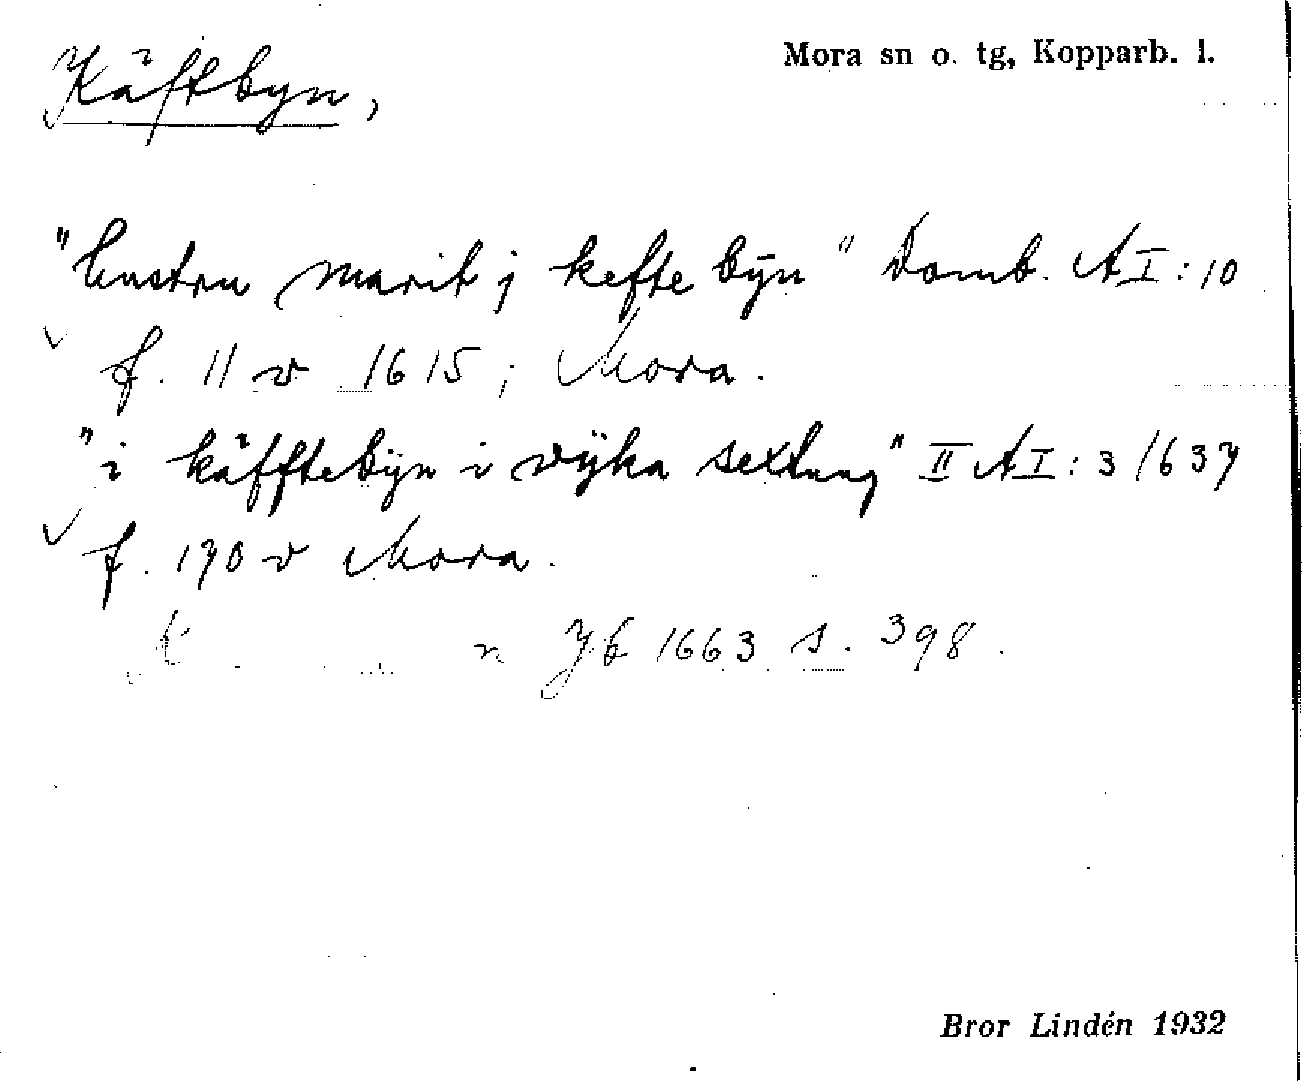 Mora sn o. tg, Kopparb. l.
Käftbyn,
"hustru marit j kefte byn" Domb. A I : 10
f. 11 v 1615; Mora.
"i käfftebyn i wijka sextung" II A I : 3 1637
f. 170 v Mora.
Jb 1663 s. 398.
Bror Lindén 1932